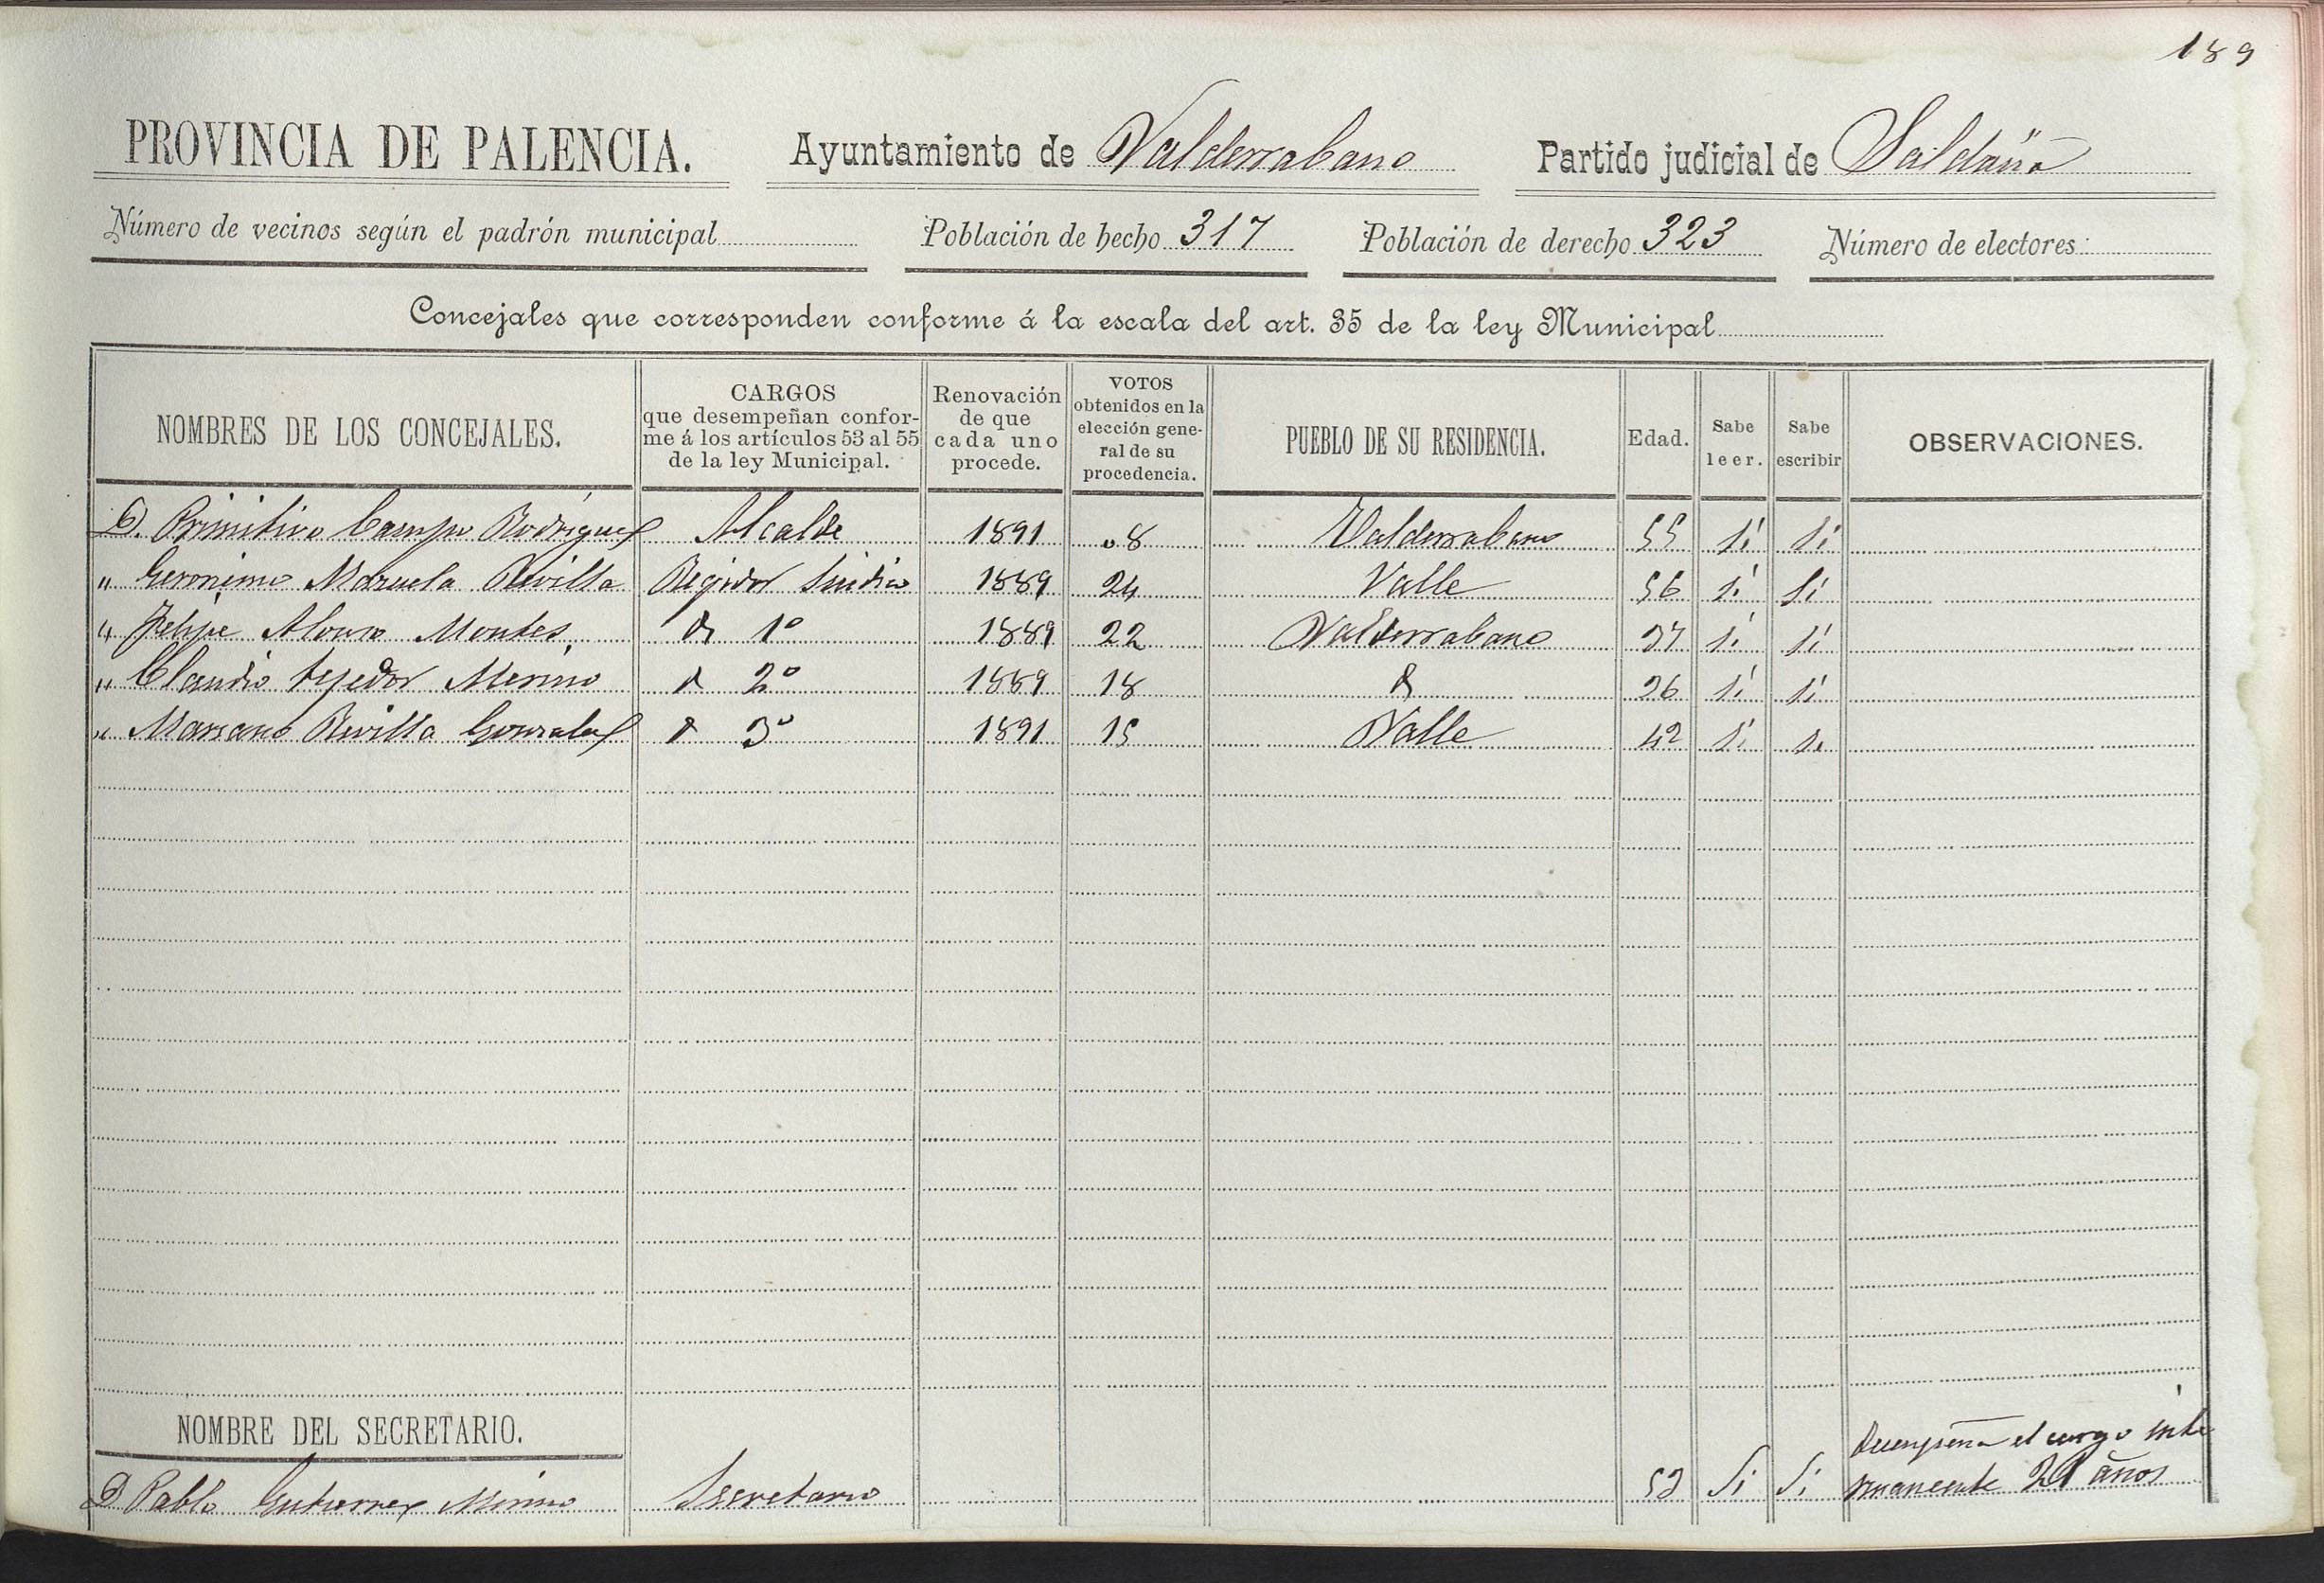 189
PROVINCIA DE PALENCIA. Ayuntamiento de Valderrabano Partido judicial de Saldaña
Número de vecinos según el padrón municipal Población de hecho 317 Población de derecho 323 Número de electores:
Concejales que corresponden conforme á la escala del art. 35 de la ley Municipal
NOMBRES DE LOS CONCEJALES. CARGOS que desempeñan confor- me á los artículos 53 al 55 de la ley Municipal. Renovación de que cada uno procede. VOTOS obtenidos en la elección gene- ral de su procedencia. PUEBLO DE SU RESIDENCIA. Edad. Sabe leer. Sabe escribir OBSERVACIONES.
D. Primitivo Campo Rodriguez Alcalde 1891 08 Valderrabano 55 si si
" Geronimo Mazuela Revilla Regidor Sindico 1889 24 Valle 56 si si
" Felipe Alonso Montes 1º 1889 22 Valderrabano 37 si si
" Claudio tejedor Merino 2º 1889 18 26 si si
" Mariano Revilla Gonzalez 3º 1891 15 Valle 42 si si
NOMBRE DEL SECRETARIO.
Desempeña el cargo inte
D Pablo Gutierrez Merino Secretario 52 Si Si años